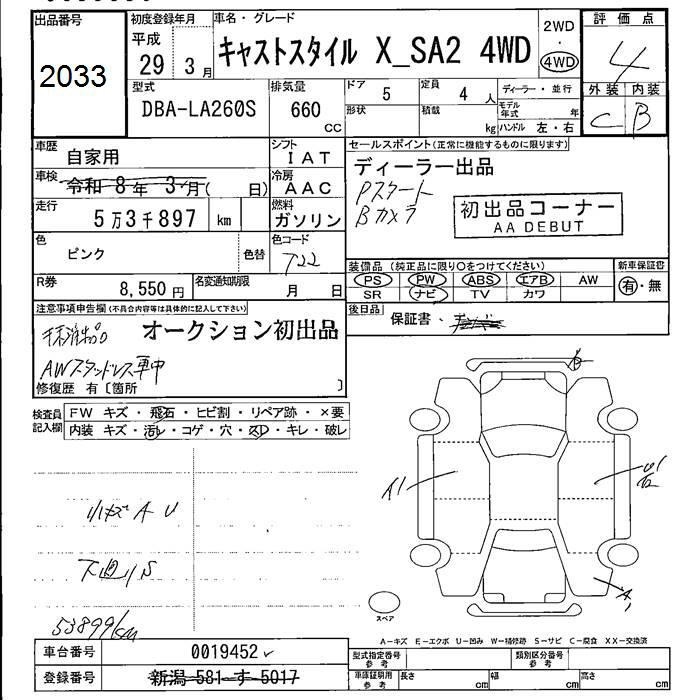 出品番号
2033
初度登録年月
平成
29 3月
車名・グレード
キャストスタイル X_SA2 4WD
2WD
4WD
評価点
4
外装 内装
C B
型式
DBA-LA260S
排気量
660
cc
ドア
5
定員
4 人
形状
積載
kg
ディーラー・並行
モデル年式 年
ハンドル 左・右
車歴
自家用
シフト
IAT
車検
令和 8年 3月( 日)
冷房
AAC
走行
5万3千897 km
燃料
ガソリン
色
ピンク
色替
色コード
T22
R券
8,550 円
名変通知期限
月 日
セールスポイント(正常に機能するものに限ります)
ディーラー出品
Pスタート
Bカメラ
初出品コーナー
AA DEBUT
装備品 (純正品に限り○をつけてください)
PS PW ABS エアB AW
SR ナビ TV カワ
新車保証書
有・無
後日品
保証書・
注意事項申告欄(不具合内容等は具体的に記入して下さい)
オークション初出品
AWスタッドレス車中
修復歴 有〔箇所 〕
検査員記入欄
FW キズ・飛石・ヒビ割・リペア跡・×要
内装 キズ・汚レ・コゲ・穴・スレ・キレ・破レ
小キズ A U
下廻り S
53899km
A1
スペア
A-キズ E-エクボ U-凹み W-補修跡 S-サビ C-腐食 XX-交換済
車台番号
0019452
登録番号
新潟 581 す 5017
型式指定番号
参考
類別区分番号
参考
車庫証明用
参考
長さ cm
幅 cm
高さ cm